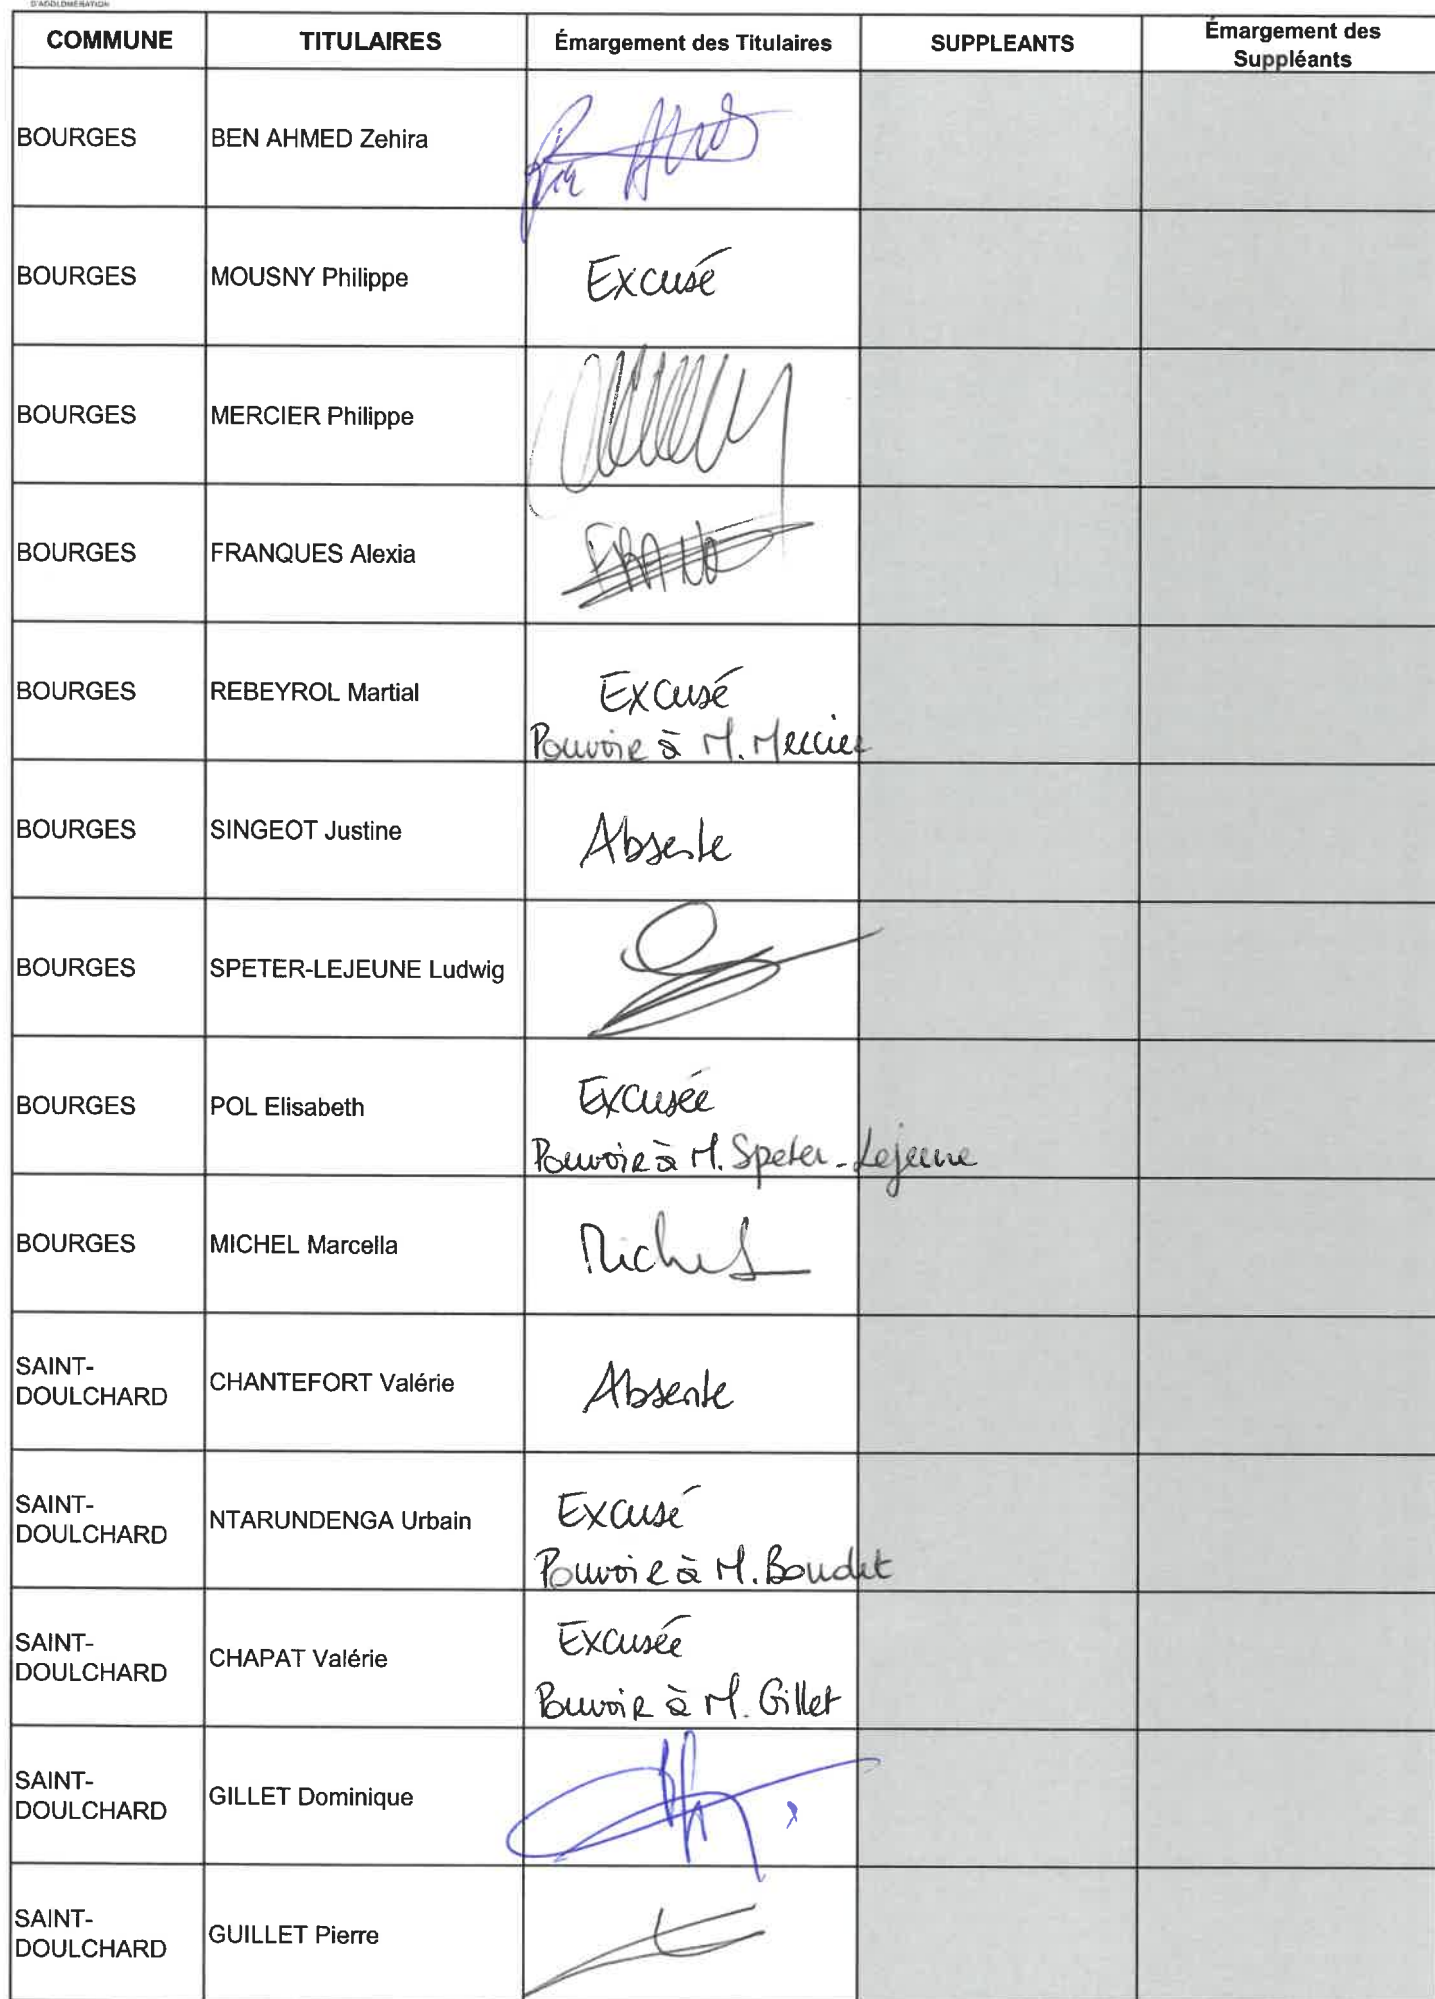 D'AGGLOMÉRATION
COMMUNE TITULAIRES Émargement des Titulaires SUPPLEANTS Émargement des
Suppléants
BOURGES BEN AHMED Zehira Ben Ahmed
BOURGES MOUSNY Philippe Excusé
BOURGES MERCIER Philippe
BOURGES FRANQUES Alexia
BOURGES REBEYROL Martial Excusé
Pouvoir à M. Mercier
BOURGES SINGEOT Justine Absente
BOURGES SPETER-LEJEUNE Ludwig
BOURGES POL Elisabeth Excusée
Pouvoir à M. Speter-Lejeune
BOURGES MICHEL Marcella Michel
SAINT-
DOULCHARD CHANTEFORT Valérie Absente
SAINT-
DOULCHARD NTARUNDENGA Urbain Excusé
Pouvoir à M. Boudet
SAINT-
DOULCHARD CHAPAT Valérie Excusée
Pouvoir à M. Gillet
SAINT-
DOULCHARD GILLET Dominique
SAINT-
DOULCHARD GUILLET Pierre